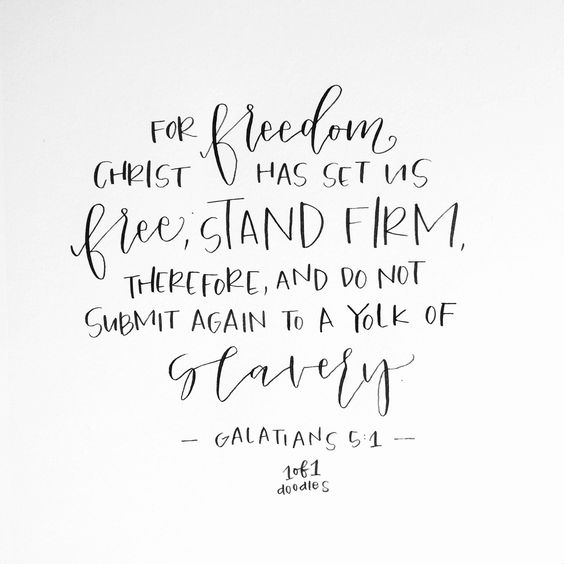 FOR freedom
CHRIST HAS SET US
free; STAND FIRM,
THEREFORE, AND DO NOT
SUBMIT AGAIN TO A YOLK OF
slavery.
— GALATIANS 5:1 —
1of1
doodles